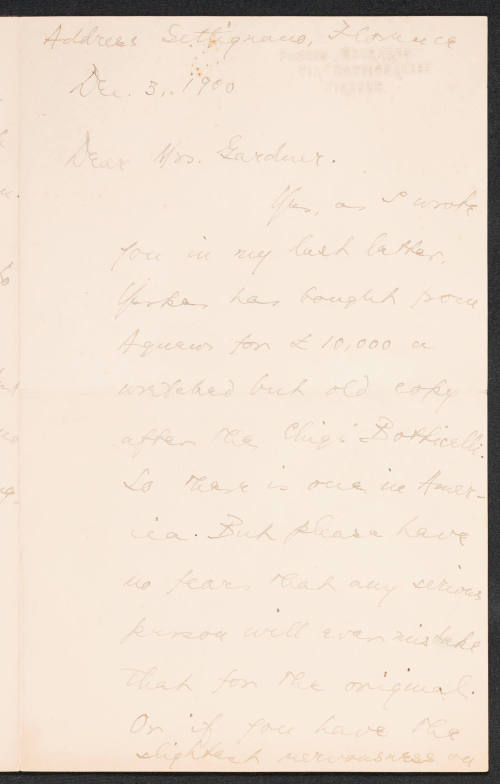 Address Settignano, Florence
Dec. 3, 1900
Dear Mrs. Gardner.
Yes, as I wrote
you in my last letter,
Yerkes has bought from
Agnews for £ 10,000 a
wretched but old copy
after the Chigi Botticelli.
So there is one in Amer-
ica. But please have
no fears that any serious
person will ever mistake
that for the original.
Or if you have the
slightest nervousness on